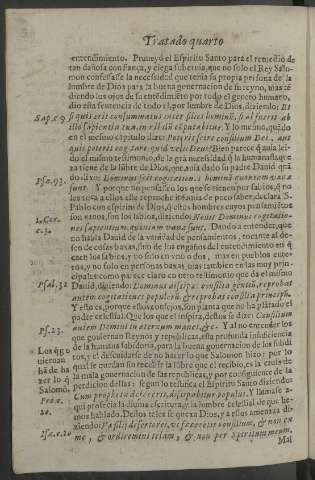 Tratado quarto
entendimiento. Proueyó el Espiritu Santo para el remedio de
tan dañosa confiança, y ciega soberuia, que no solo el Rey Salo-
mon confessasse la necessidad que tenia su propia persona de la
lumbre de Dios para la buena gouernacion de su reyno, mas te-
diendo los ojos de su entendimiẽto por todo el genero humano,
dio esta sentencia de todo el, por lumbre de Dios, diziendo: Et
Sap.c.9.
si quis erit consummatus inter filios hominũ, si ab fuerit ab
illo sapientia tua, in nihilũ computabitur. Y lo mesmo, quãdo
en el mesmo capitulo dize: Poterit scire consilium Dei, aut
quis poterit cogitare, quid velit Deus? Bien parece q̃ auia lei-
do el mismo testimonio, de la grã necessidad q̃ la humana flaque
za tiene de la lũbre de Dios, que auia dado su padre Dauid quã
Psa.93.
do dixo: Dominus scit cogitationes hominũ quoniam vanæ
sunt. Y porque no pensassẽ los que se tienen por sabios, q̃ no
les toca a ellos esse reproche
Pablo con espiritu de Dios, q̃ dichos hombres cuyos pensamiẽtos
1.Cor.
son vanos, son los sabios, diziendo: Nouit Dominus cogitatio-
c.3.
nes sapientium, quoniam vanæ sunt. Dando a entender, que
no habla Dauid de la vanidad de pensamientos, tocante al de-
seo de cosas baxas, sino de los engaños del entendimiento en q̃
caen los sabios, y no solo en vno o dos, mas en pueblos ente-
ros, y no solo en personas baxas, mas tambien en las mas prin-
cipales: como parece claro en otro testimonio que da el mismo
Psal.32
Dauid, diziendo: Dominus dissipat consilia gentiũ, reprobat
autem cogitationes populorũ, & reprobat consilia principũ.
Y esto es, porque essos consejos, son planta que no ha plãtado el
padre celestial. Que los que el inspira, destos se dize: Consilium
Ps.23.
autem Domini in æternum manet, &c. Y al no entender los
que gouiernan Reynos y republicas, esta profunda insuficiencia
Los q̃ go
de la humana sabiduria, para la buena gouernacion de los subdi
uiernan
tos, y el descuidarse de no hazer lo que Salomon hizo: por lo
hã de ha
qual se quedan sin recebir la lũbre que el recibio, es la causa de
zer lo q̃
la mala gouernacion de las republicas, y por consiguiente de la
Salomõ.
perdicion dellas: segun lo testifica el Espiritu Santo diziendo:
Cum prophetia defecerit, dissipabitur populus. Y llamase a-
29.
qui profecia la diuina escritura, y la lumbre celestial de que he-
mos hablado. Destos tales se quexa Dios, y a ellos amenaza di-
Isa.c.30
ziendo: Væ filij desertores, vt faceretis consilium, & non ex
me, & ordiremini telam, & non per Spiritum meum.
Mal